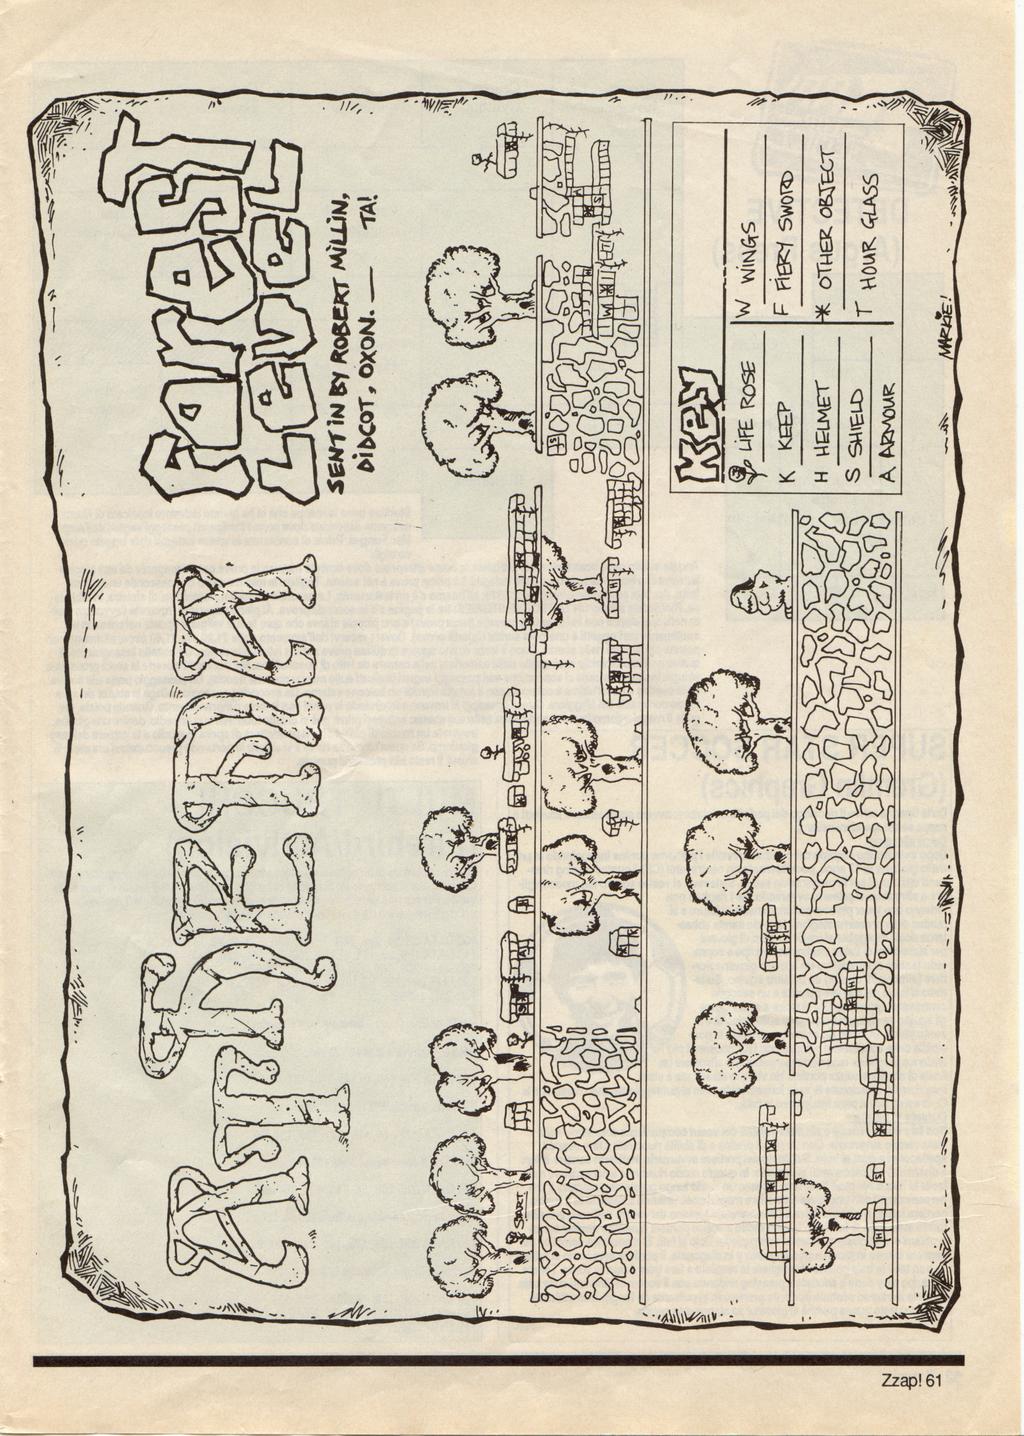 ATHENA
FOREST
LEVEL
SENT IN BY ROBERT MILLIN,
DIDCOT, OXON. — TA!
START
KEY
LIFE ROSE
K KEEP
H HELMET
S SHIELD
A ARMOUR
W WINGS
F FIERY SWORD
* OTHER OBJECT
T HOUR GLASS
MARKIE!
Zzap! 61